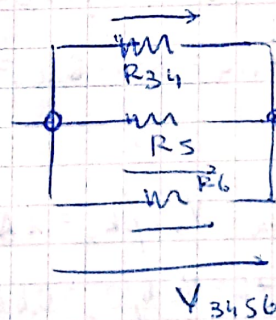 R34
R5
R6
V3456